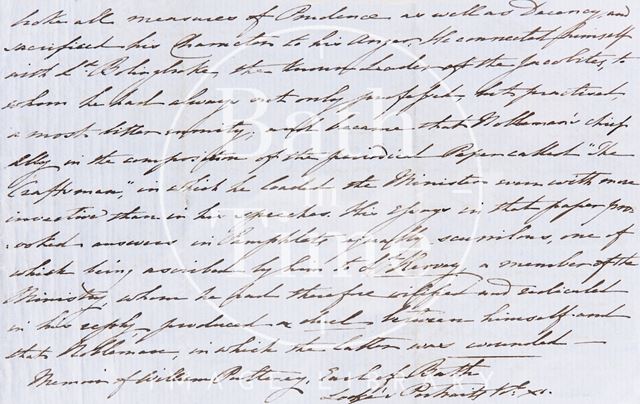 broke all measures of Prudence as well as Decency, and
sacrificed his Character to his Anger. He connected himself
with Ld. Bolingbroke, the known Leader of the Jacobites, to
whom he had always not only professed but practised
a most bitter enmity, and became that Nobleman's chief
Ally in the composition of the periodical Paper called "The
Craftsman," in which he loaded the Minister even with more
invective than in his speeches. His Essays in that paper pro
voked answers in Pamphlets equally scurrilous, one of
which being ascribed by him to Ld. Hervey, a member of the
Ministry, whom he had therefore vilified and ridiculed
in his reply, produced a duel between himself and
that Nobleman, in which the latter was wounded —
Memoir of William Pulteney, Earl of Bath
Lodge's Portraits Vol. XI.
Bath
in
Time
IMAGE LIBRARY